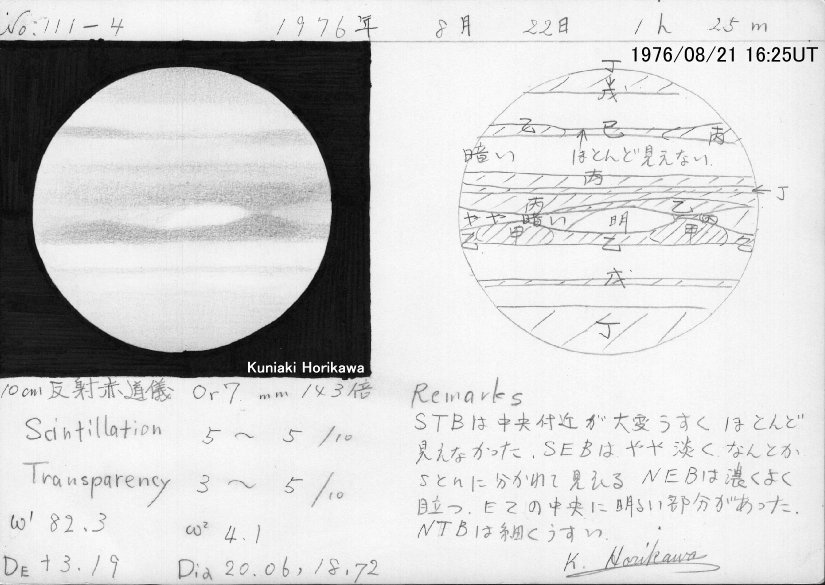 No: 111-4 1976年 8月 22日 1h 25m
1976/08/21 16:25UT
丁
戊
乙 巳 丙
暗い ほとんど見えない
丙
丁
丙 乙
やや暗い 明 丙
甲 甲
乙 乙 乙
戊
丁
Kuniaki Horikawa
10cm 反射赤道儀 Or7 mm 143倍
Scintillation 5~5/10
Transparency 3~5/10
ω¹ 82.3 ω² 4.1
DE +3.19 Dia 20.06, 18.72
Remarks
STBは中央付近が大変うすくほとんど
見えなかった.SEBはやや淡くなんとか
s と n に分かれて見える NEBは濃くよく
目立つ.EZの中央に明るい部分があった.
NTBは細くうすい.
K. Horikawa